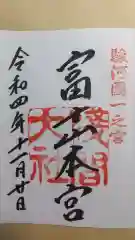 駿河國一之宮
富士山本宮
浅間大社
令和四年十一月廿日